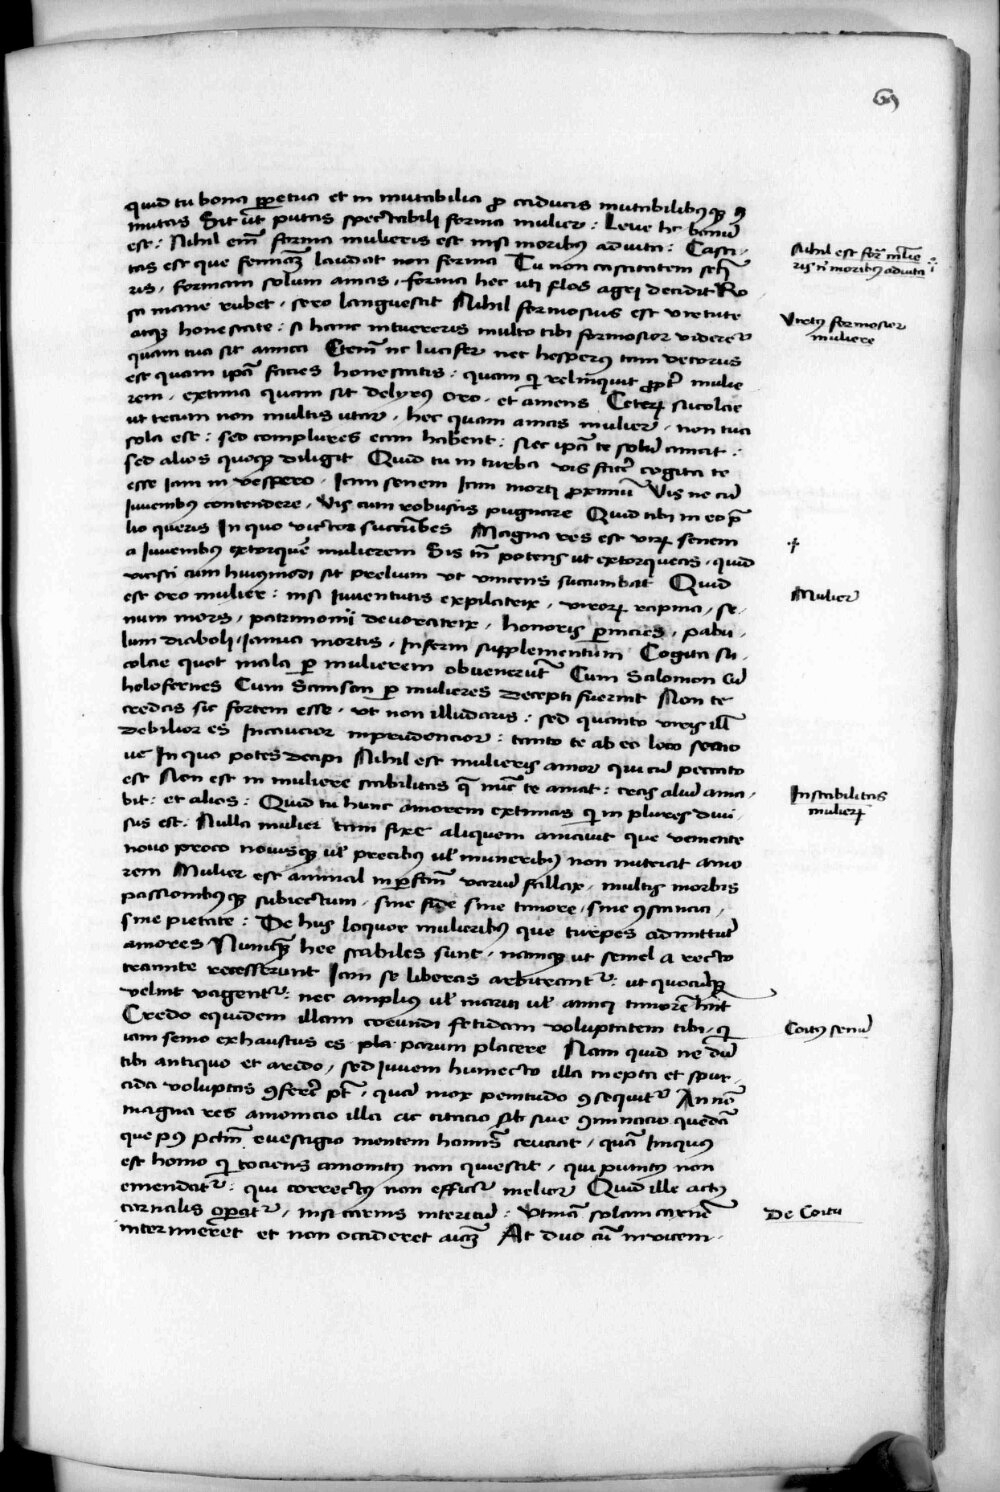 69
quid tu bona ꝑpetua et in mutabilia ꝓ caducis mutabilibꝰqꝫ ꝯ
mutas Sit ut putas spectabili forma mulier : Leve hͨ bonū
est : Nihil em̄ forma mulieris est nisi moribus adiuta : Casti-
tas est que feminā laudat non forma Tu non castitatem seq̄
ris , formam solum amas , forma hec uti flos agri decidit Ro
sa mane rubet , sero languescit Nihil formosius est virtute
atqꝫ honestate : si hanc intuereris multo tibi formosior videret᷑
quam tua sit amica Eteni nͨ lucifer nec hesperꝰ tam decorus
est quam ipā facies honestatis : quam qͥ relinquit ꝓpt᷑ mulie
rem , extima quam sit delyrꝰ oro , et amens Ceteꝝ Nicolae
ut tecum non multis utar , hec quam amas mulier , non tua
sola est : sed complures eam habent : Nec ipā te solū amat :
sed alios quoqꝫ diligit Quid tu in turba vis facē cogita te
esse iam in vespero , Iam senem Iam morti ꝓximū Vis ne cū
iuvenibus contendere , Vis cum robustis pugnare Quid tibi in eo p̄
lio queris In quo victor succūbes Magna res est viꝝ senem
a iuvenibus extorquē mulierem Sis tn̄ potens ut extorqueas , quid
vicisti cum huiusmodi sit prelium ut vincens sucumbat Quid
est oro mulier : nisi iuventutis expilatrix , viroꝝ rapina , se-
num mors , patrimonii devoratrix , honoris ꝑnicies , pabu-
lum diaboli , Ianua mortis , Inferni supplementum Cogita Ni-
colae quot mala ꝑ mulierem obvenerūt Cum Salomon Cū
holofernes Cum Samson ꝑ mulieres decepti fuerint Non te
credas sic fortem esse , ut non illudaris : sed quanto viris ill̄
debilior es Incautior inprudencior : tanto te ab eo loco semo
ve In quo potes decipi Nihil est mulieris amor qui cū peccato
est Non est in muliere stabilitas q̄ nūc te amat : cras aliū ama-
bit : et alios : Quid tu hunc amorem extimas qͥ in plures divi-
sus est . Nulla mulier tam fixe aliquem amavit que veniente
novo proco novisqꝫ ul̄ precibꝰ ul̄ muneribꝰ non mutavit amo
rem Mulier est animal inꝑfctm̄ variū fallax , multis morbis
passionibusqꝫ subiectum , sine fide sine timore , sine ꝯstancia ,
sine pietate : De hijs loquor mulieribꝰ que turpes admittūt
amores Numqꝫ hee stabiles sunt , namqꝫ ut semel a recto
tramite recesserunt Iam se liberas arbitrant᷑ : ut quocūqꝫ
velint vagent᷑ : nec amplius ul̄ mariti ul̄ amici timorē hn̄t
Credo equidem illam coeundi fetidam voluptatem tibi , qͥ
iam senio exhaustus es pla parum placere Nam quid ne dū
tibi antiquo et arido , sed Iuveni humecto illa inepta et spur-
cida voluptas ꝯferē pt̄ , quā mox penitudo ꝯsequit᷑ An nō
magna res amonicio illa ac citacio sit sive ꝯminacio quedā
que pꝰ pctm̄ evestigio mentem homis cruciat , quā Iniquus
est homo qͥ tociens amonitꝰ non quiescit , qui punitꝰ non
emendat᷑ : qui correctꝰ non efficit᷑ melior Quid ille actꝰ
carnalis oꝑat᷑ , nisi carnis interitū : Utinā solam carnē
interimeret et non occideret aiāꝫ At duo cū invicem .
Nihil est for᷑ mulie
ris n̄ moribꝰ adiuta
Virtꝰ formosior
muliere
Mulier
Instabilitas
mulieꝝ
Coitꝰ seniū
De Coitu